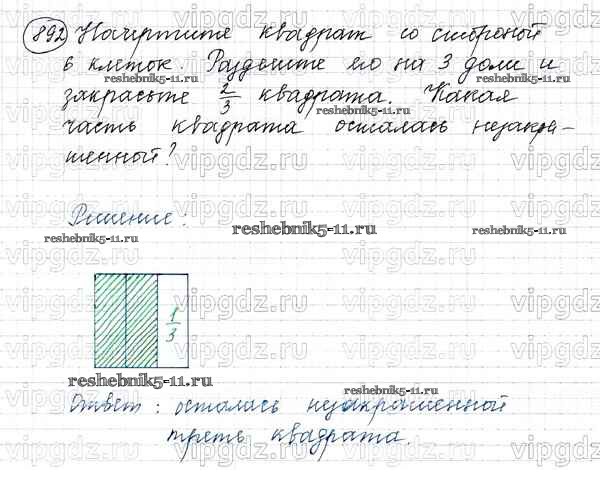 892 Начертите квадрат со стороной
6 клеток. Разделите его на 3 доли и
reshebnik5-11.ru
закрасьте 2/3 квадрата. Какая
reshebnik5-11.ru
часть квадрата осталась незакра-
шенной?
vipgdz.ru
Решение:
reshebnik5-11.ru
reshebnik5-11.ru
reshebnik5-11.ru
1/3
reshebnik5-11.ru
reshebnik5-11.ru
Ответ: осталась незакрашенной
треть квадрата.